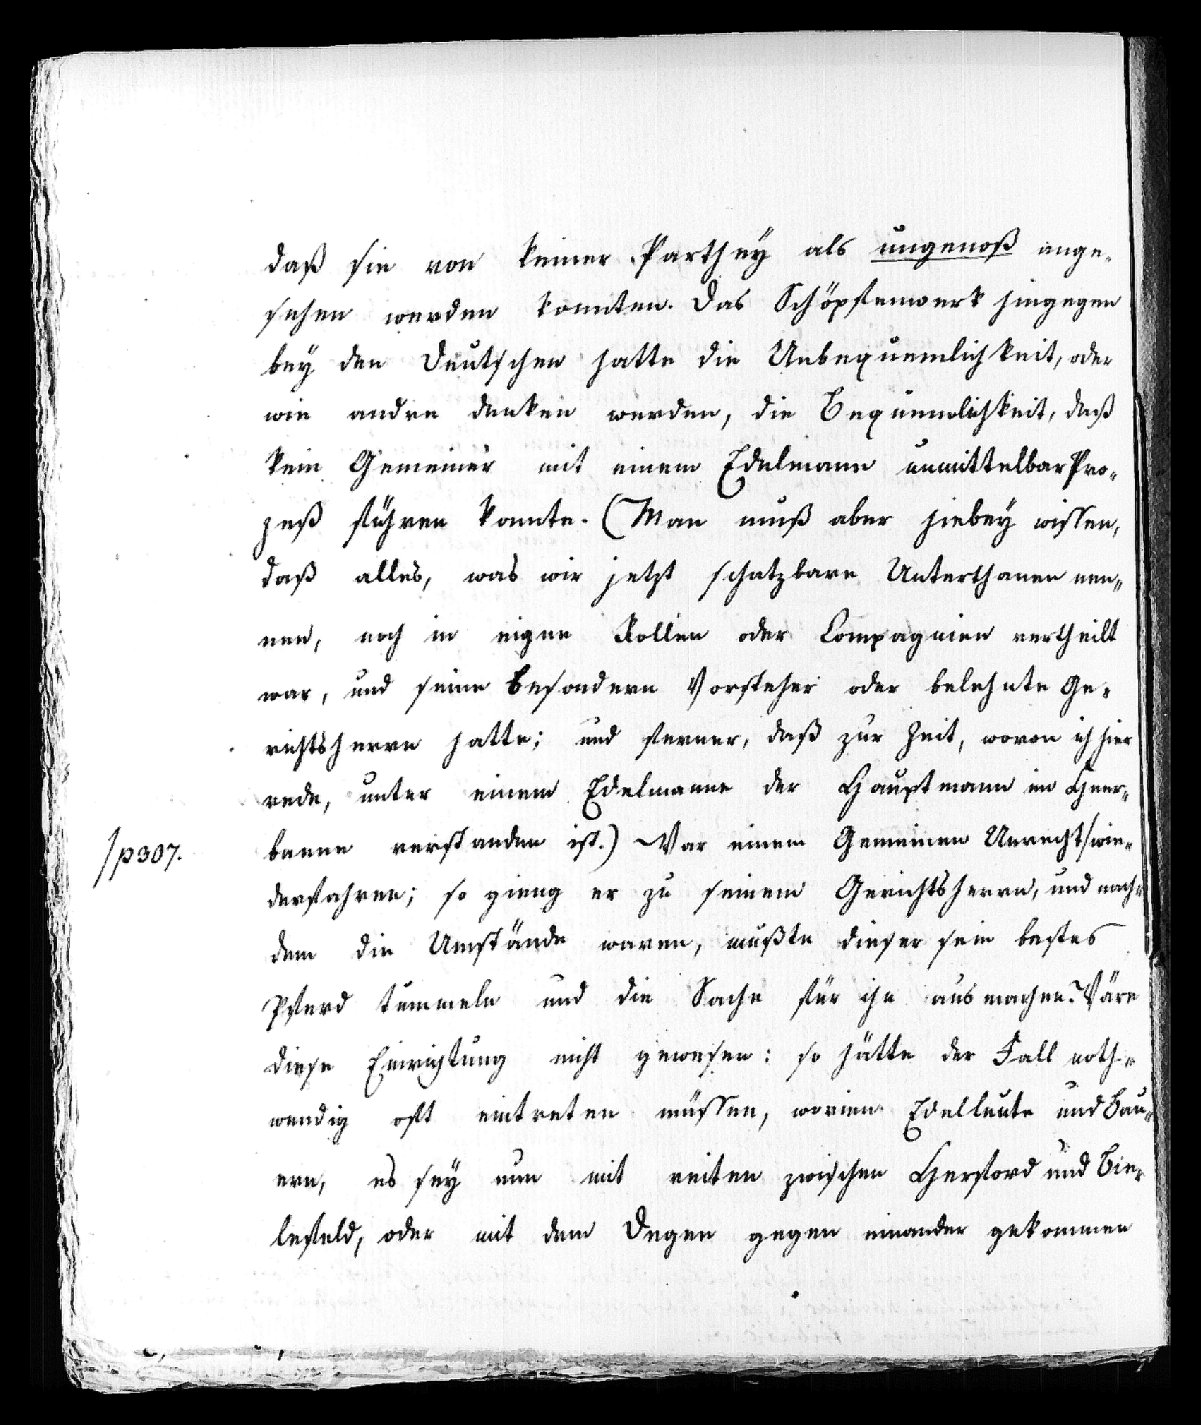 daß sie von keiner Parthey als ungenoß ange-
sehen werden konnten. Das Schöpfenwerk hingegen
bey den Deutschen hatte die Unbequemlichkeit, oder
wie andre denken werden, die Bequemlichkeit, daß
kein Gemeiner mit einem Edelmann unmittelbar Pro-
zeß führen konnte. (Man muß aber hiebey wissen,
daß alles, was wir jetzt schatzbare Unterthanen nen-
nen, noch in eigne Rollen oder Compagnien vertheilt
war, und seine besondern Vorsteher oder belehnte Ge-
richtsherrn hatte; und ferner, daß zur Zeit, wovon ich hier
rede, unter einem Edelmanne der Hauptmann im Heer-
banne verstanden ist.) War einem Gemeinen Unrecht/wie-
/p307.
derfahren; so gieng er zu seinem Gerichtsherrn, und nach-
dem die Umstände waren, mußte dieser sein bestes
Pferd tummeln und die Sache für ihn ausmachen. Wäre
diese Einrichtung nicht gewesen: so hätte der Fall noth-
wendig oft eintreten müssen, worinn Edelleute und Bau-
ern, es sey nun mit reiten zwischen Herford und Bie-
lefeld, oder mit dem Degen gegen einander gekommen